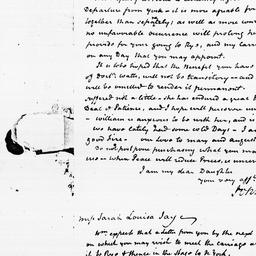 Departure from york - it is more agreable for
together than separately; as well as more conv
no unfavorable occurrence will prolong he
provide for your going to Rye, and my Carr
on any Day that you may appoint.
It is to be hoped that the Benefit you have
of Doct.r Watts, will not be transitory - and
will be omitted to render it permanent.
suffered not a little - she has endured a great
Deal of Patience, and I hope will preserve
William is anxious to be with her, and is
we have lately had some cold Days - I am
good Fire - our Love to mary and august
Do not postpone purchasing what you ma
until - when Peace will reduce Prices, is uncer
I am my dear Daughter
your very aff.te
Miss Sarah Louisa Jay
W.m expects that a letter from you by the next
on which you may wish to meet the carriage at
it to Rye & thence in the stage to N. York.